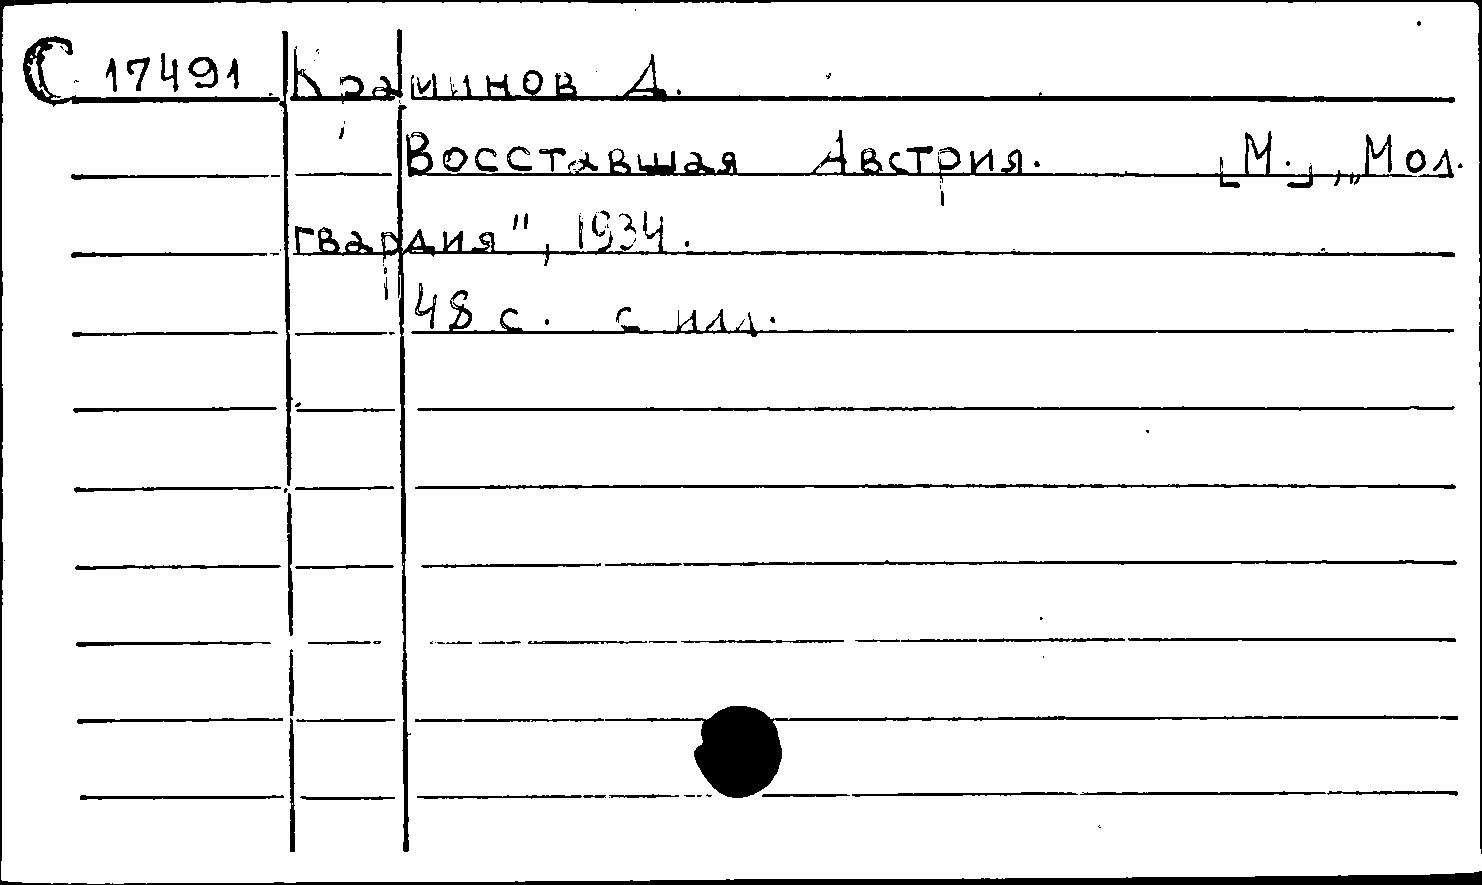 С 17491 Краминов Д.
Восставшая Австрия. [М.], „Мол.
гвардия", 1934.
48 с. с илл.